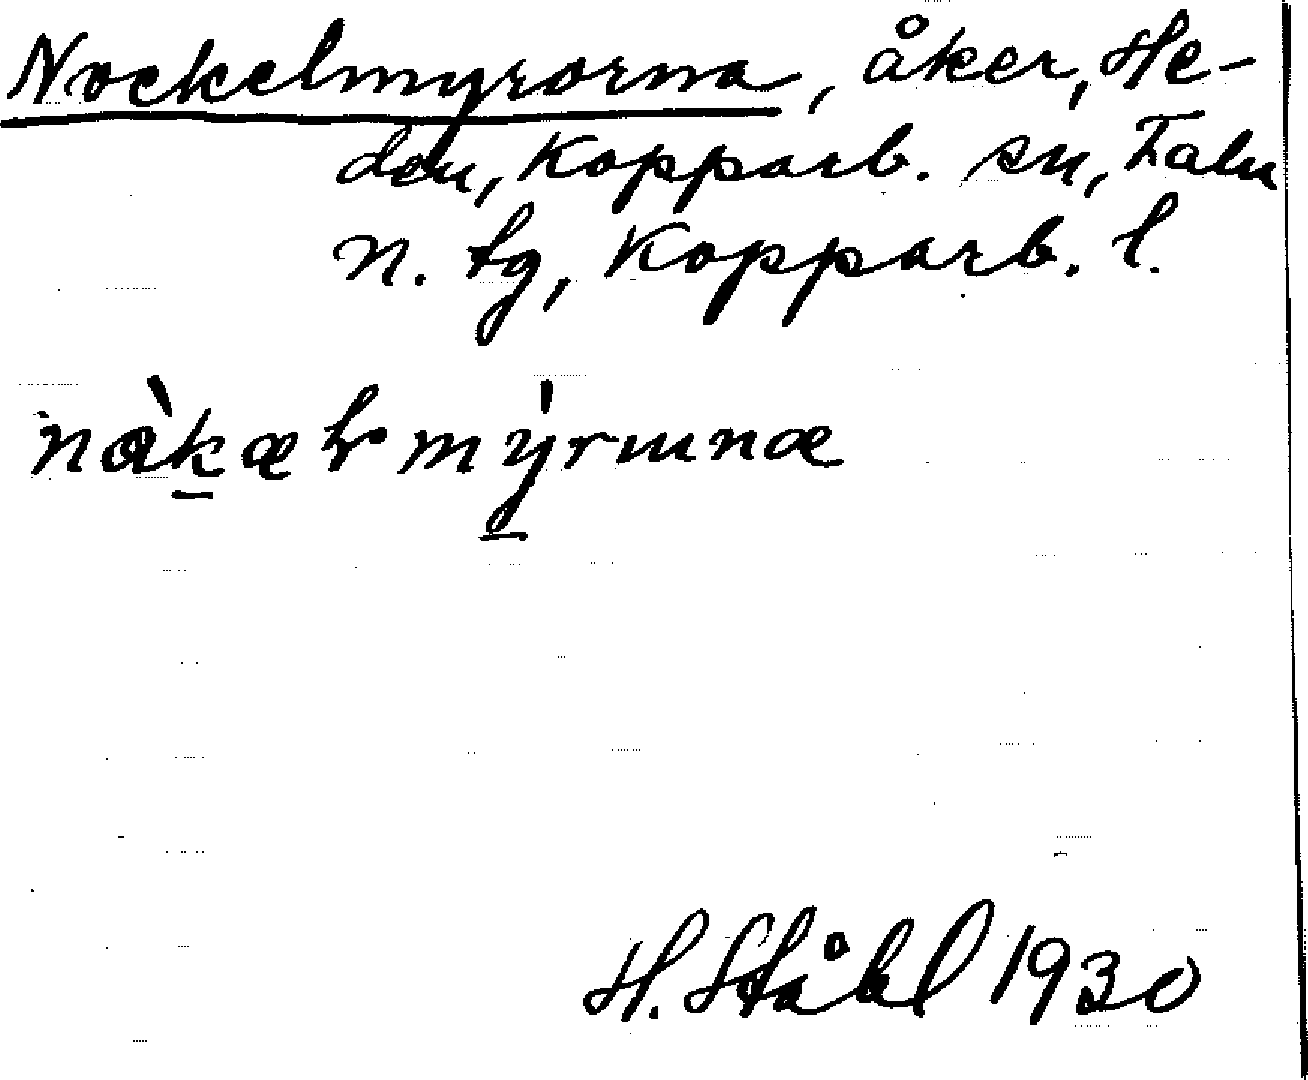 Nockelmyrorna, åker, He-
den, Kopparb. sn, Falu
N. tg, Kopparb. l.
H. Ståhl 1930